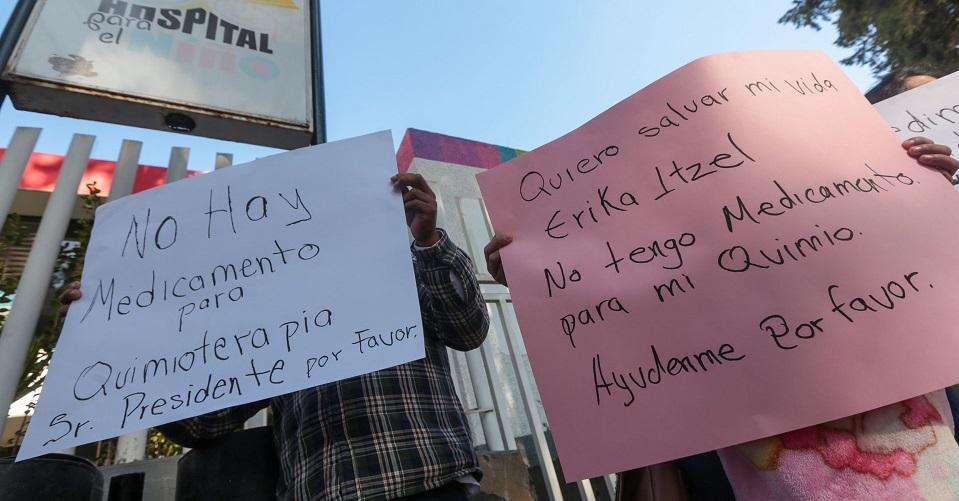 HOSPITAL
para
el
NIÑO
No Hay
Medicamento
para
Quimioterapia
Sr. Presidente por Favor.
Quiero salvar mi vida
Erika Itzel
No tengo Medicamento.
para mi Quimio.
Ayudenme Por favor.